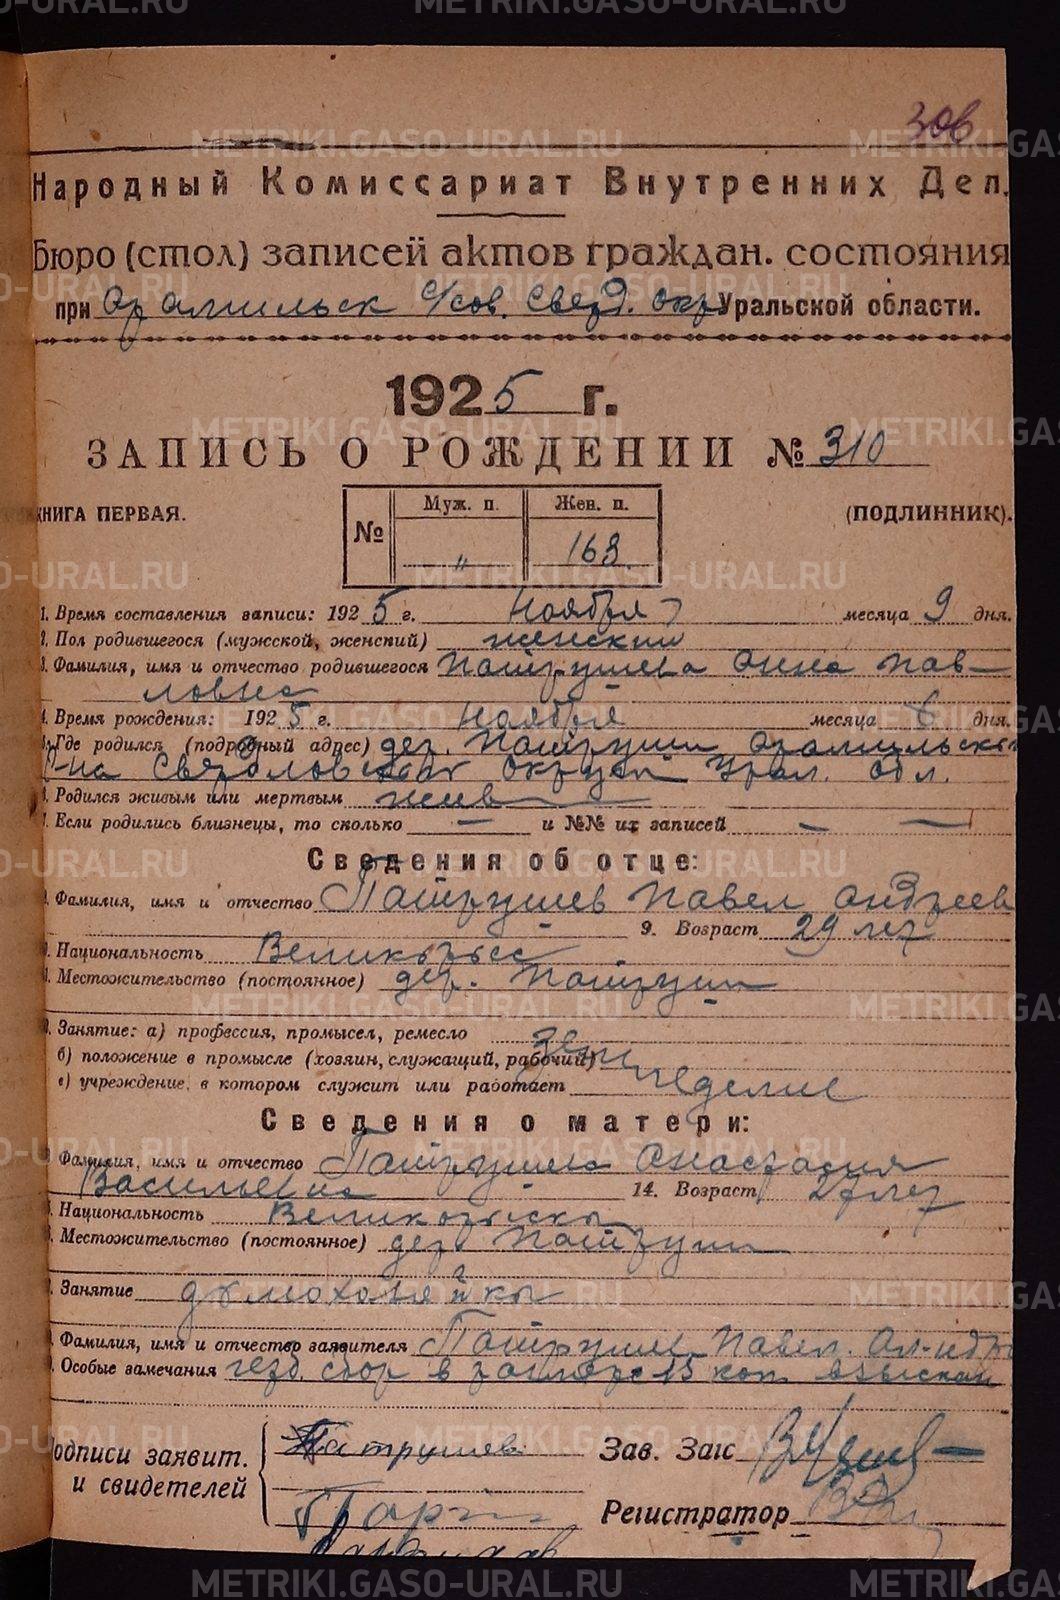 306
Народный Комиссариат Внутренних Дел.
Бюро (стол) записей актов граждан. состояния
при Арамильск с/сов. Сверд. окр Уральской области.
1925 г.
ЗАПИСЬ О РОЖДЕНИИ № 310
КНИГА ПЕРВАЯ. (ПОДЛИННИК).
№ Муж. п. Жен. п.
" 163
1. Время составления записи: 1925 г. Ноября месяца 9 дня.
2. Пол родившегося (мужской, женский) женский
3. Фамилия, имя и отчество родившегося Патрушева Анна Пав-
ловна
4. Время рождения: 1925 г. Ноября месяца 6 дня.
5. Где родился (подробный адрес) дер. Патруши Арамильског
р-на Свердловского Округа Урал. обл.
6. Родился живым или мертвым жив
7. Если родились близнецы, то сколько — и №№ их записей — —
Сведения об отце:
8. Фамилия, имя и отчество Патрушев Павел Андреев
9. Возраст 29 лет
10. Национальность Великорусс
11. Местожительство (постоянное) дер. Патруши
12. Занятие: а) профессия, промысел, ремесло
б) положение в промысле (хозяин, служащий, рабочий) Земле
в) учреждение, в котором служит или работает делие
Сведения о матери:
13. Фамилия, имя и отчество Патрушева Анастасия
Васильевна 14. Возраст 27 лет
15. Национальность Великорусска
16. Местожительство (постоянное) дер. Патруши
17. Занятие домохозяйка
18. Фамилия, имя и отчество заявителя Патрушев Павел
19. Особые замечания сбор в размере 15 коп. взыскан
Подписи заявит. Патрушев Зав. Загс
и свидетелей
Регистратор
METRIKI.GASO-URAL.RU